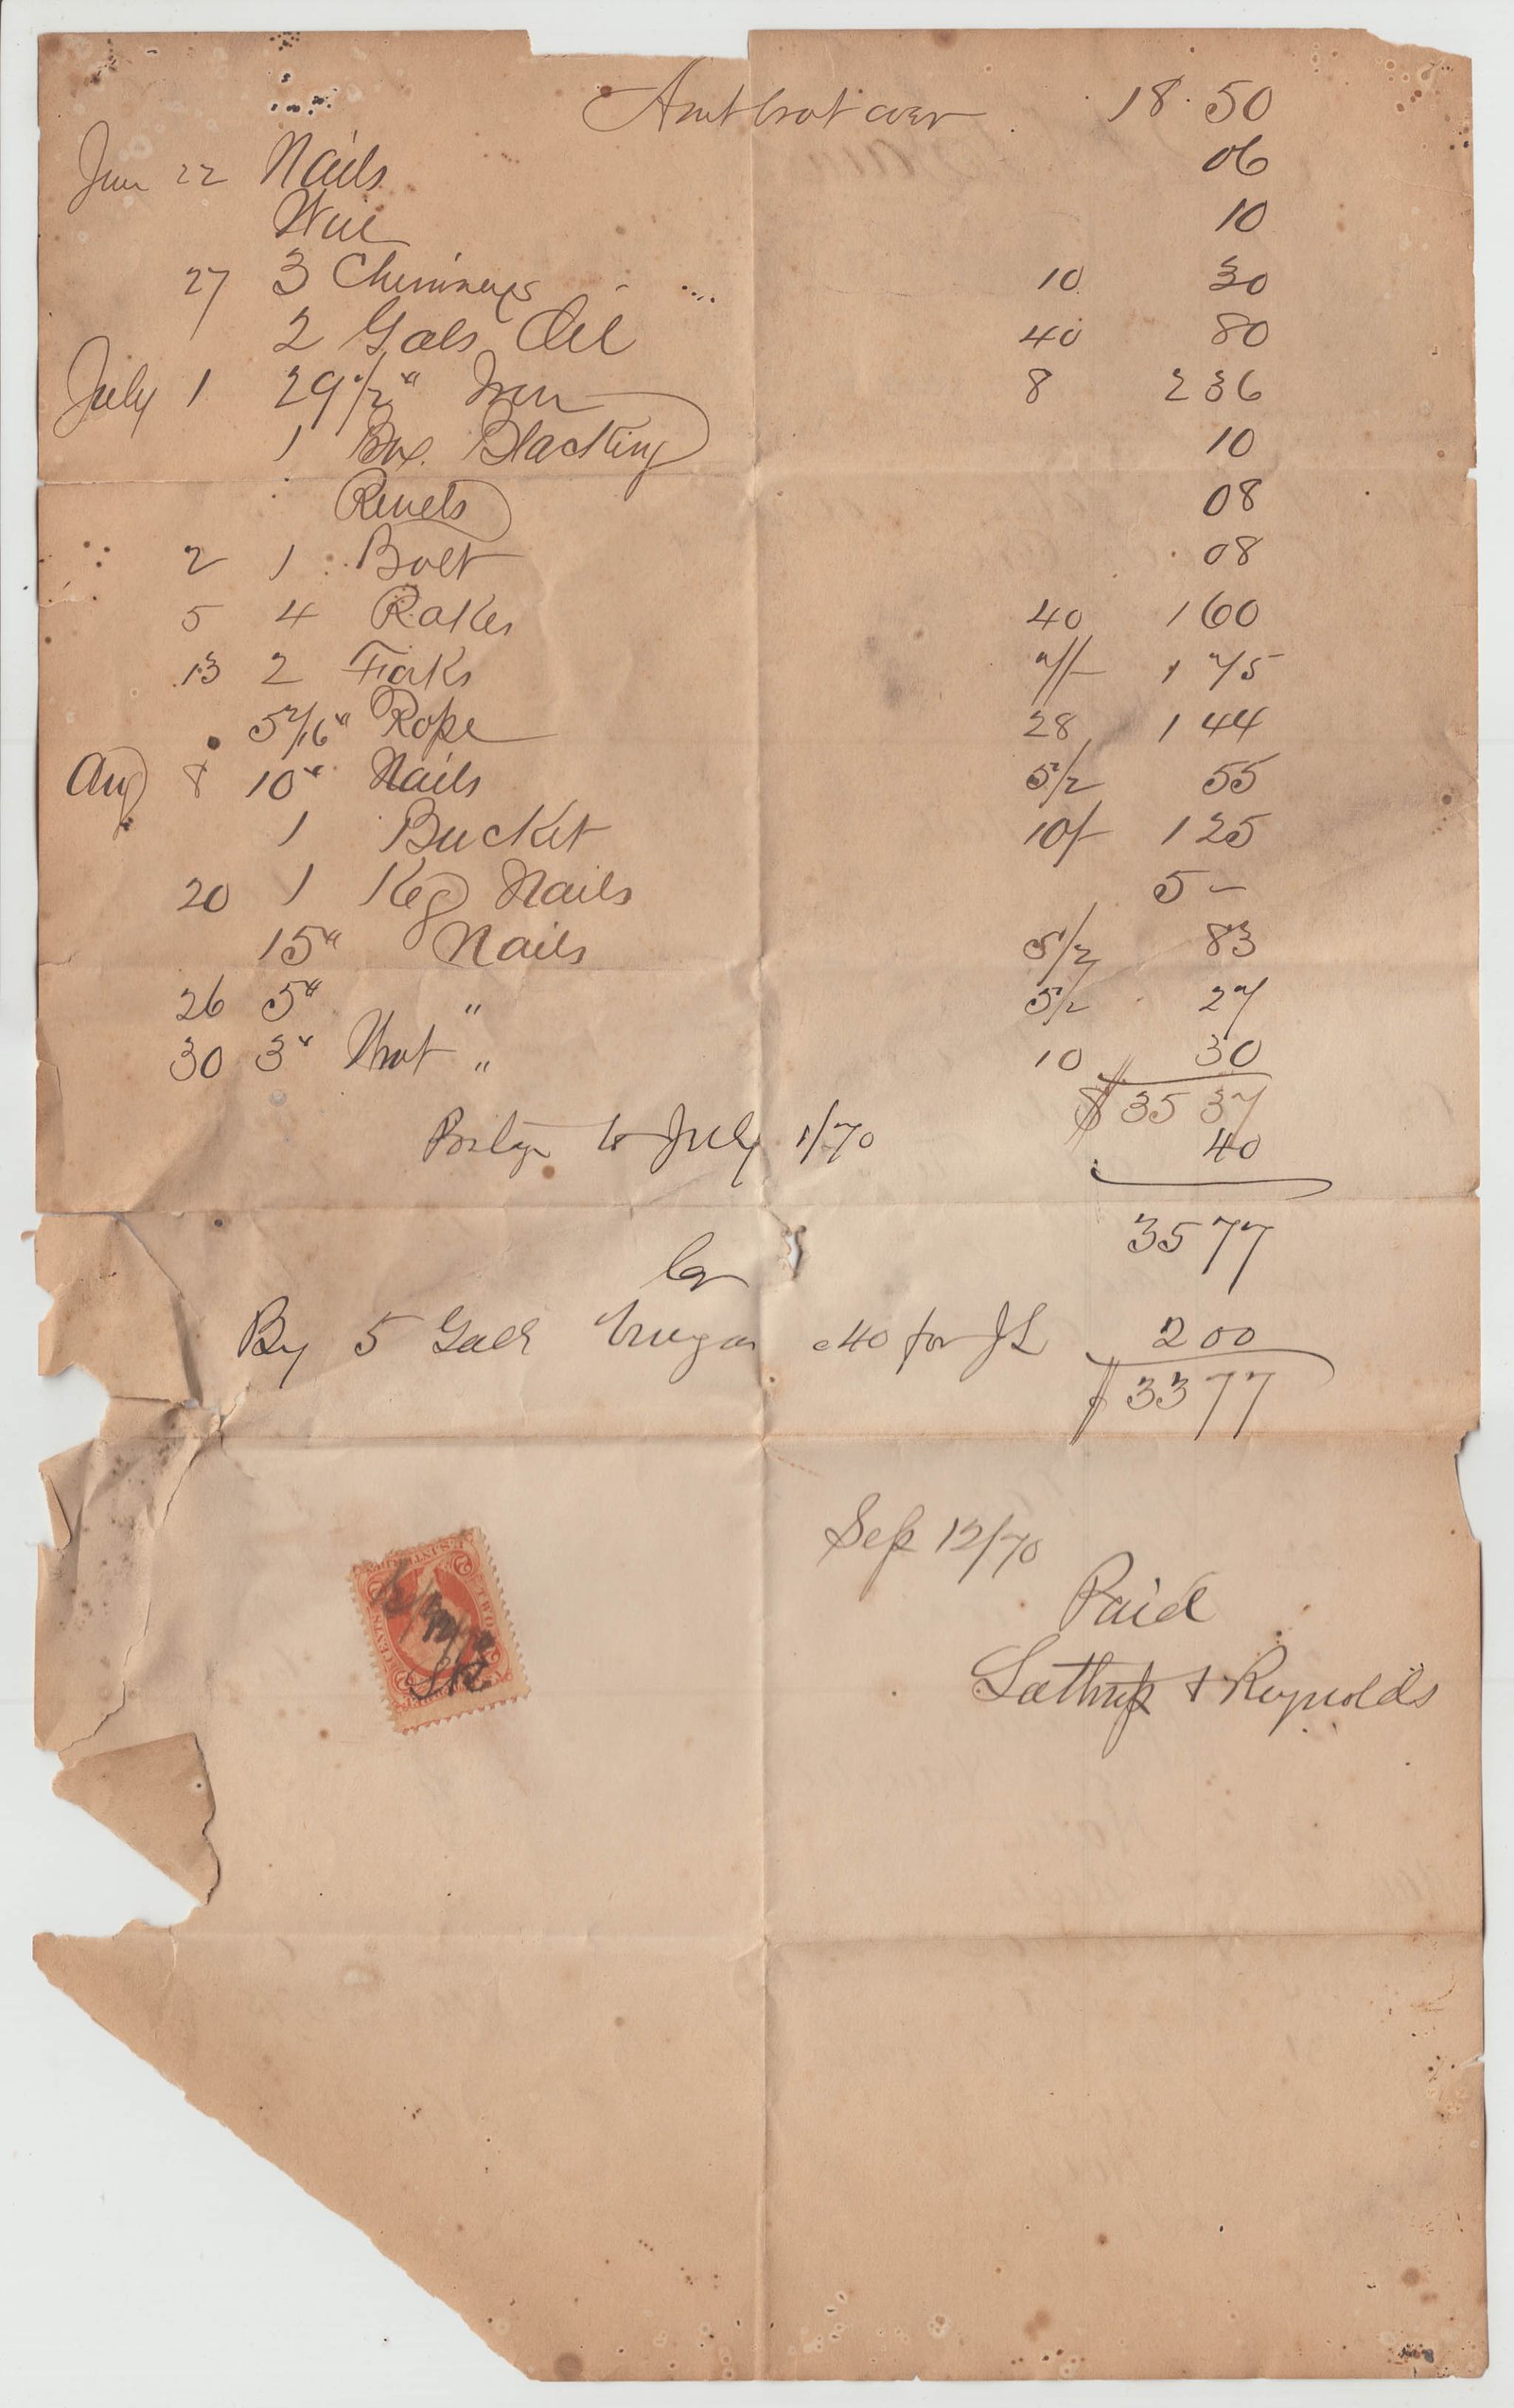 Amt brot over 18.50
Jun 22 Nails 06
Wire 10
27 3 Chimneys 10 30
2 Gals Oil 40 80
July 1 29 1/2 " Iron 8 2 36
1 Box Blacking 10
Rivets 08
2 1 Bolt 08
5 4 Rakes 40 1 60
13 2 Forks 7/- 1 75
5 2/16 " Rope 28 1 44
Aug 8 10 " Nails 5 1/2 55
1 Bucket 10/- 1 25
20 1 Keg Nails 5 -
15 " Nails 5 1/2 83
26 5 " " 5 1/2 27
30 3 " Wrot " 10 30
$ 35 37
Postage to July 1/70 40
35 77
Cr
By 5 Galls Vinegar 40 for JL 2 00
$ 33 77
Sep 12/70
Paid
Lathrop & Reynolds
U.S. INTER. REV.
TWO
CENTS
2
2
2
2